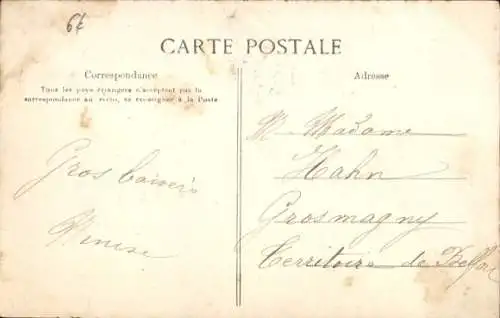 6€
CARTE POSTALE
Correspondance
Tous les pays étrangers n'acceptent pas la
correspondance au recto, se renseigner à la Poste
Adresse
Gros baisers
M. Madame
Hahn
Grosmagny
Territoire de Belfort